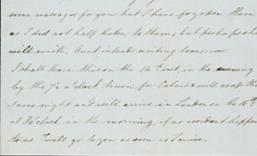 some messages for you but I have forgotten them
as I did not half listen to them, but perhaps she
will write, Aunt intends writing tomorrow
I shall leave this on the 14th inst, in the evening
by the 7½ o'clock train for Calais & will cross the
same night and will arrive in London on the 15th
at o'clock in the morning, if no accident happens
to us I will go to you as soon as